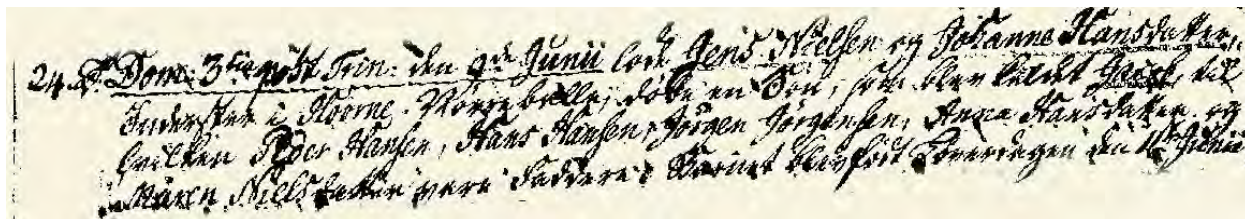 24. Dom: 3tia post Trin: den 9de Junii lod Jens Nielsen og Johanne Hansdatter,
Inderster i Noorne døbe en Søn, som blev kaldet til
hvilken Peder Hansen, Hans Hansen, Jørgen Jørgensen, Anna Hansdatter og
Maren Nielsdatter vare Faddere; Barnet blev født Løverdagen den 1ste Junii